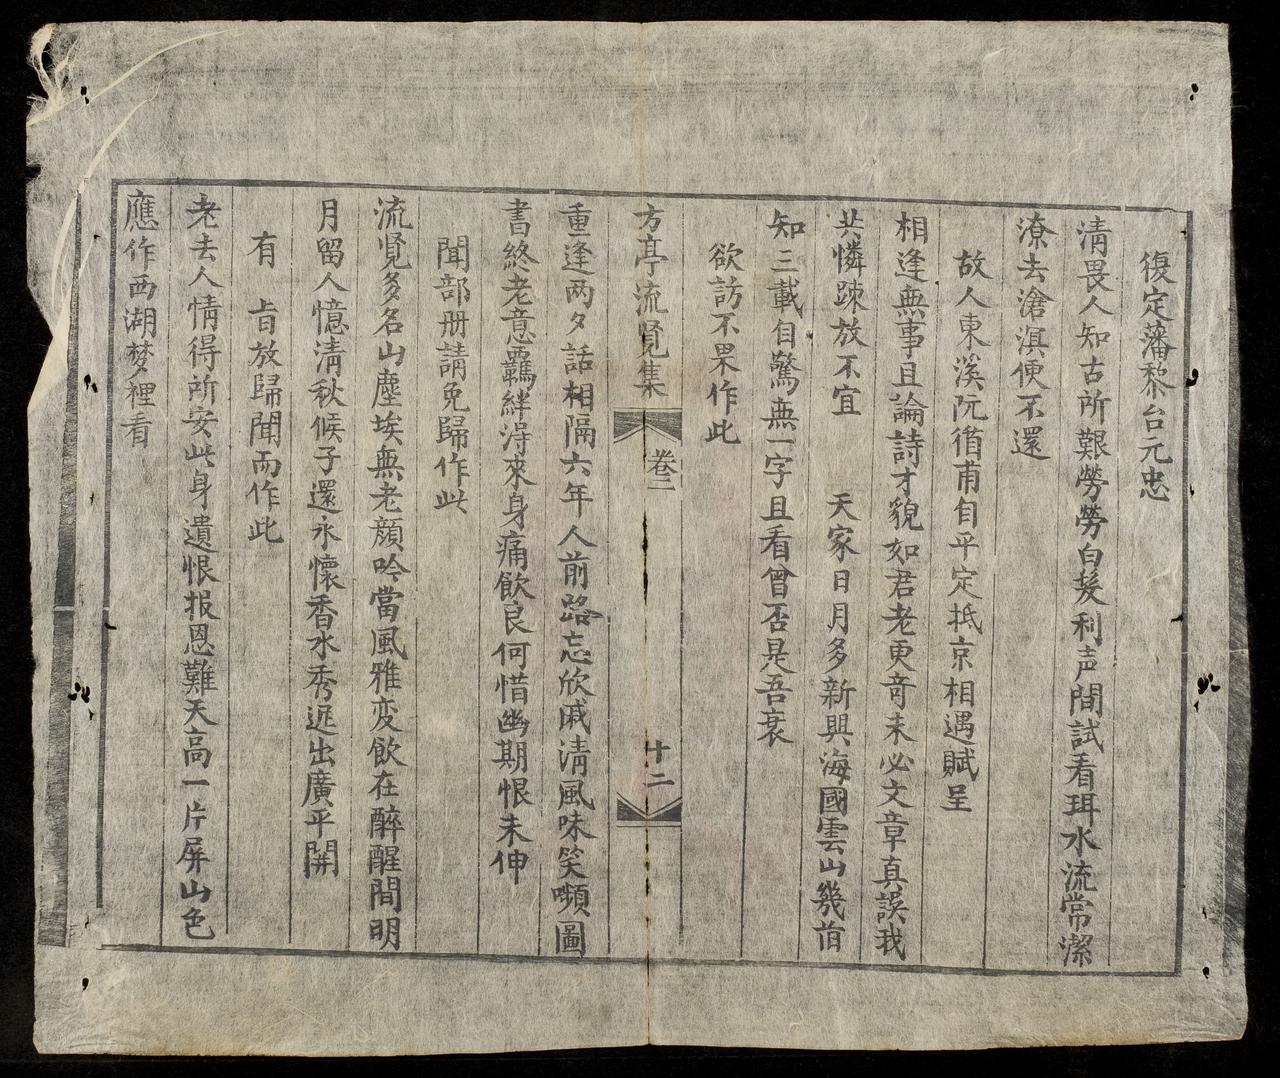 復定藩黎台元忠
清畏人知古所艱勞勞白髮利声間試看珥水流常潔
潦去滄溟便不還
故人東溪阮循甫自平定抵京相遇賦呈
相逢無事且論詩才貌如君老更奇未必文章真誤我
共憐踈放不宜　天家日月多新興海國雲山幾首
知三載自驚無一字且看曾否是吾衰
欲訪不果作此
方亭流覽集　卷二　十二
重逢两夕話相隔六年人前路忘欣戚清風味笑嚬圖
書終老意羈絆淂來身痛飲良何惜幽期恨未伸
聞部册請免歸作此
流覽多名山塵埃無老顔吟當風雅変飲在醉醒間明
月留人憶清秋候子還永懷香水秀迯出廣平開
有　旨放歸聞而作此
老去人情得所安此身遺恨报恩難天高一片屏山色
應作西湖梦裡看